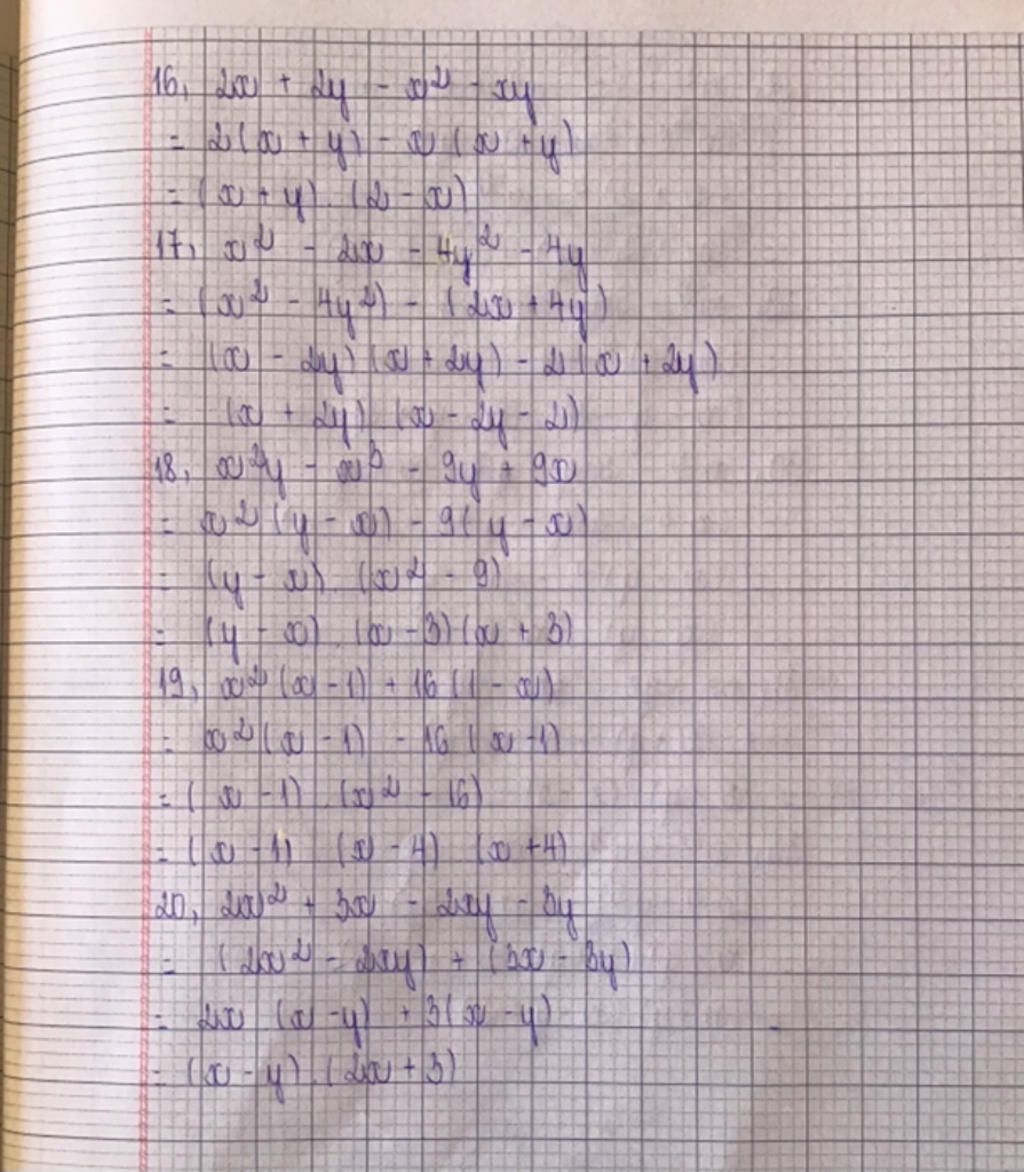 16, 2x + 2y - x² - xy
= 2(x + y) - x (x + y)
= (x + y) . (2 - x)
17, x² - 2x - 4y² - 4y
= (x² - 4y²) - (2x + 4y)
= (x - 2y) (x + 2y) - 2 (x + 2y)
= (x + 2y) (x - 2y - 2)
18, x²y - x³ - 9y + 9x
= x² (y - x) - 9( y - x)
= (y - x) . (x² - 9)
= (y - x) . (x - 3) (x + 3)
19, x² (x - 1) + 16 (1 - x)
= x² (x - 1) - 16 (x - 1)
= ( x - 1) . (x² - 16)
= (x - 1) (x - 4) (x + 4)
20, 2x² + 3x - 2xy - 3y
= (2x² - 2xy) + (3x - 3y)
= 2x (x - y) + 3(x - y)
= (x - y) . (2x + 3)